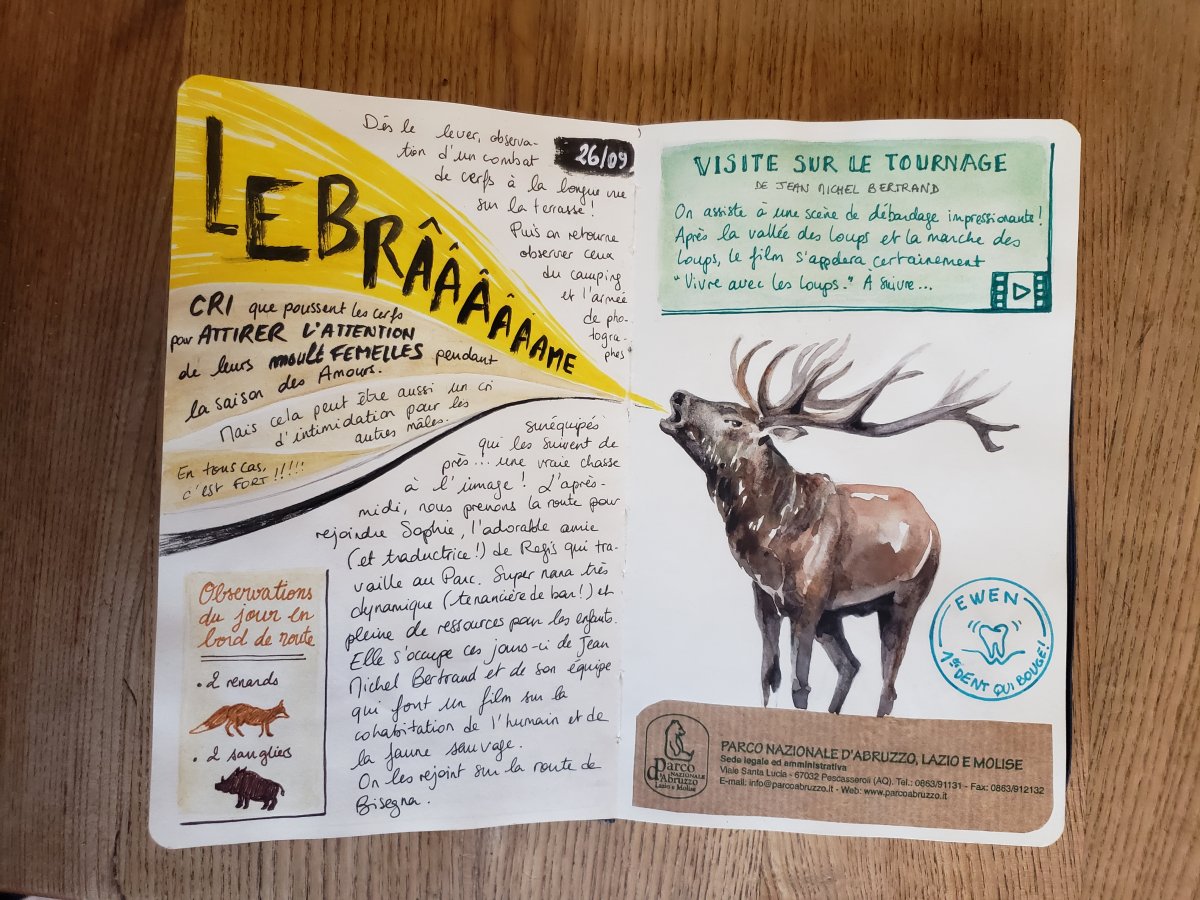 LE BRÂÂÂÂÂAAME
CRI que poussent les cerfs
pour ATTIRER L'ATTENTION
de leurs moult FEMELLES pendant
la saison des Amours.
Mais cela peut être aussi un cri
d'intimidation pour les
autres mâles.
En tous cas,
c'est FORT !!!!!
26/09
Dès le lever, observa-
tion d'un combat
de cerfs à la longue vue
sur la terrasse !
Puis on retourne
observer ceux
du camping
et l'armée
de pho-
togra-
phes
suréquipés
qui les suivent de
près... une vraie chasse
à l'image ! L'après-
midi, nous prenons la route pour
rejoindre Sophie, l'adorable amie
(et traductrice !) de Regis qui tra-
vaille au Parc. Super nana très
dynamique (tenancière de bar !) et
pleine de ressources pour les enfants.
Elle s'occupe ces jours-ci de Jean
Michel Bertrand et de son équipe
qui font un film sur la
cohabitation de l'humain et de
la faune sauvage.
On les rejoint sur la route de
Bisegna.
Observations
du jour en
bord de route
• 2 renards
• 2 sangliers
VISITE SUR LE TOURNAGE
DE JEAN MICHEL BERTRAND
On assiste à une scène de débardage impressionante !
Après la vallée des loups et la marche des
loups, le film s'appelera certainement
"Vivre avec les loups." À suivre...
EWEN
1ère DENT QUI BOUGE !
Parco
NAZIONALE
d'Abruzzo
Lazio e Molise
PARCO NAZIONALE D'ABRUZZO, LAZIO E MOLISE
Sede legale ed amministrativa
Viale Santa Lucia - 67032 Pescasseroli (AQ). Tel.: 0863/91131 - Fax: 0863/912132
E-mail: info@parcoabruzzo.it - Web: www.parcoabruzzo.it